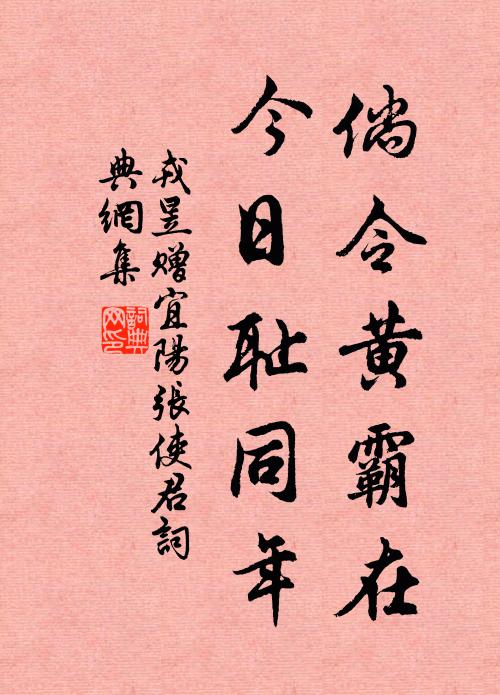 倘令黄霸在
今日耻同年
戎昱赠宜陽張使君詞
典網集
詞典网印